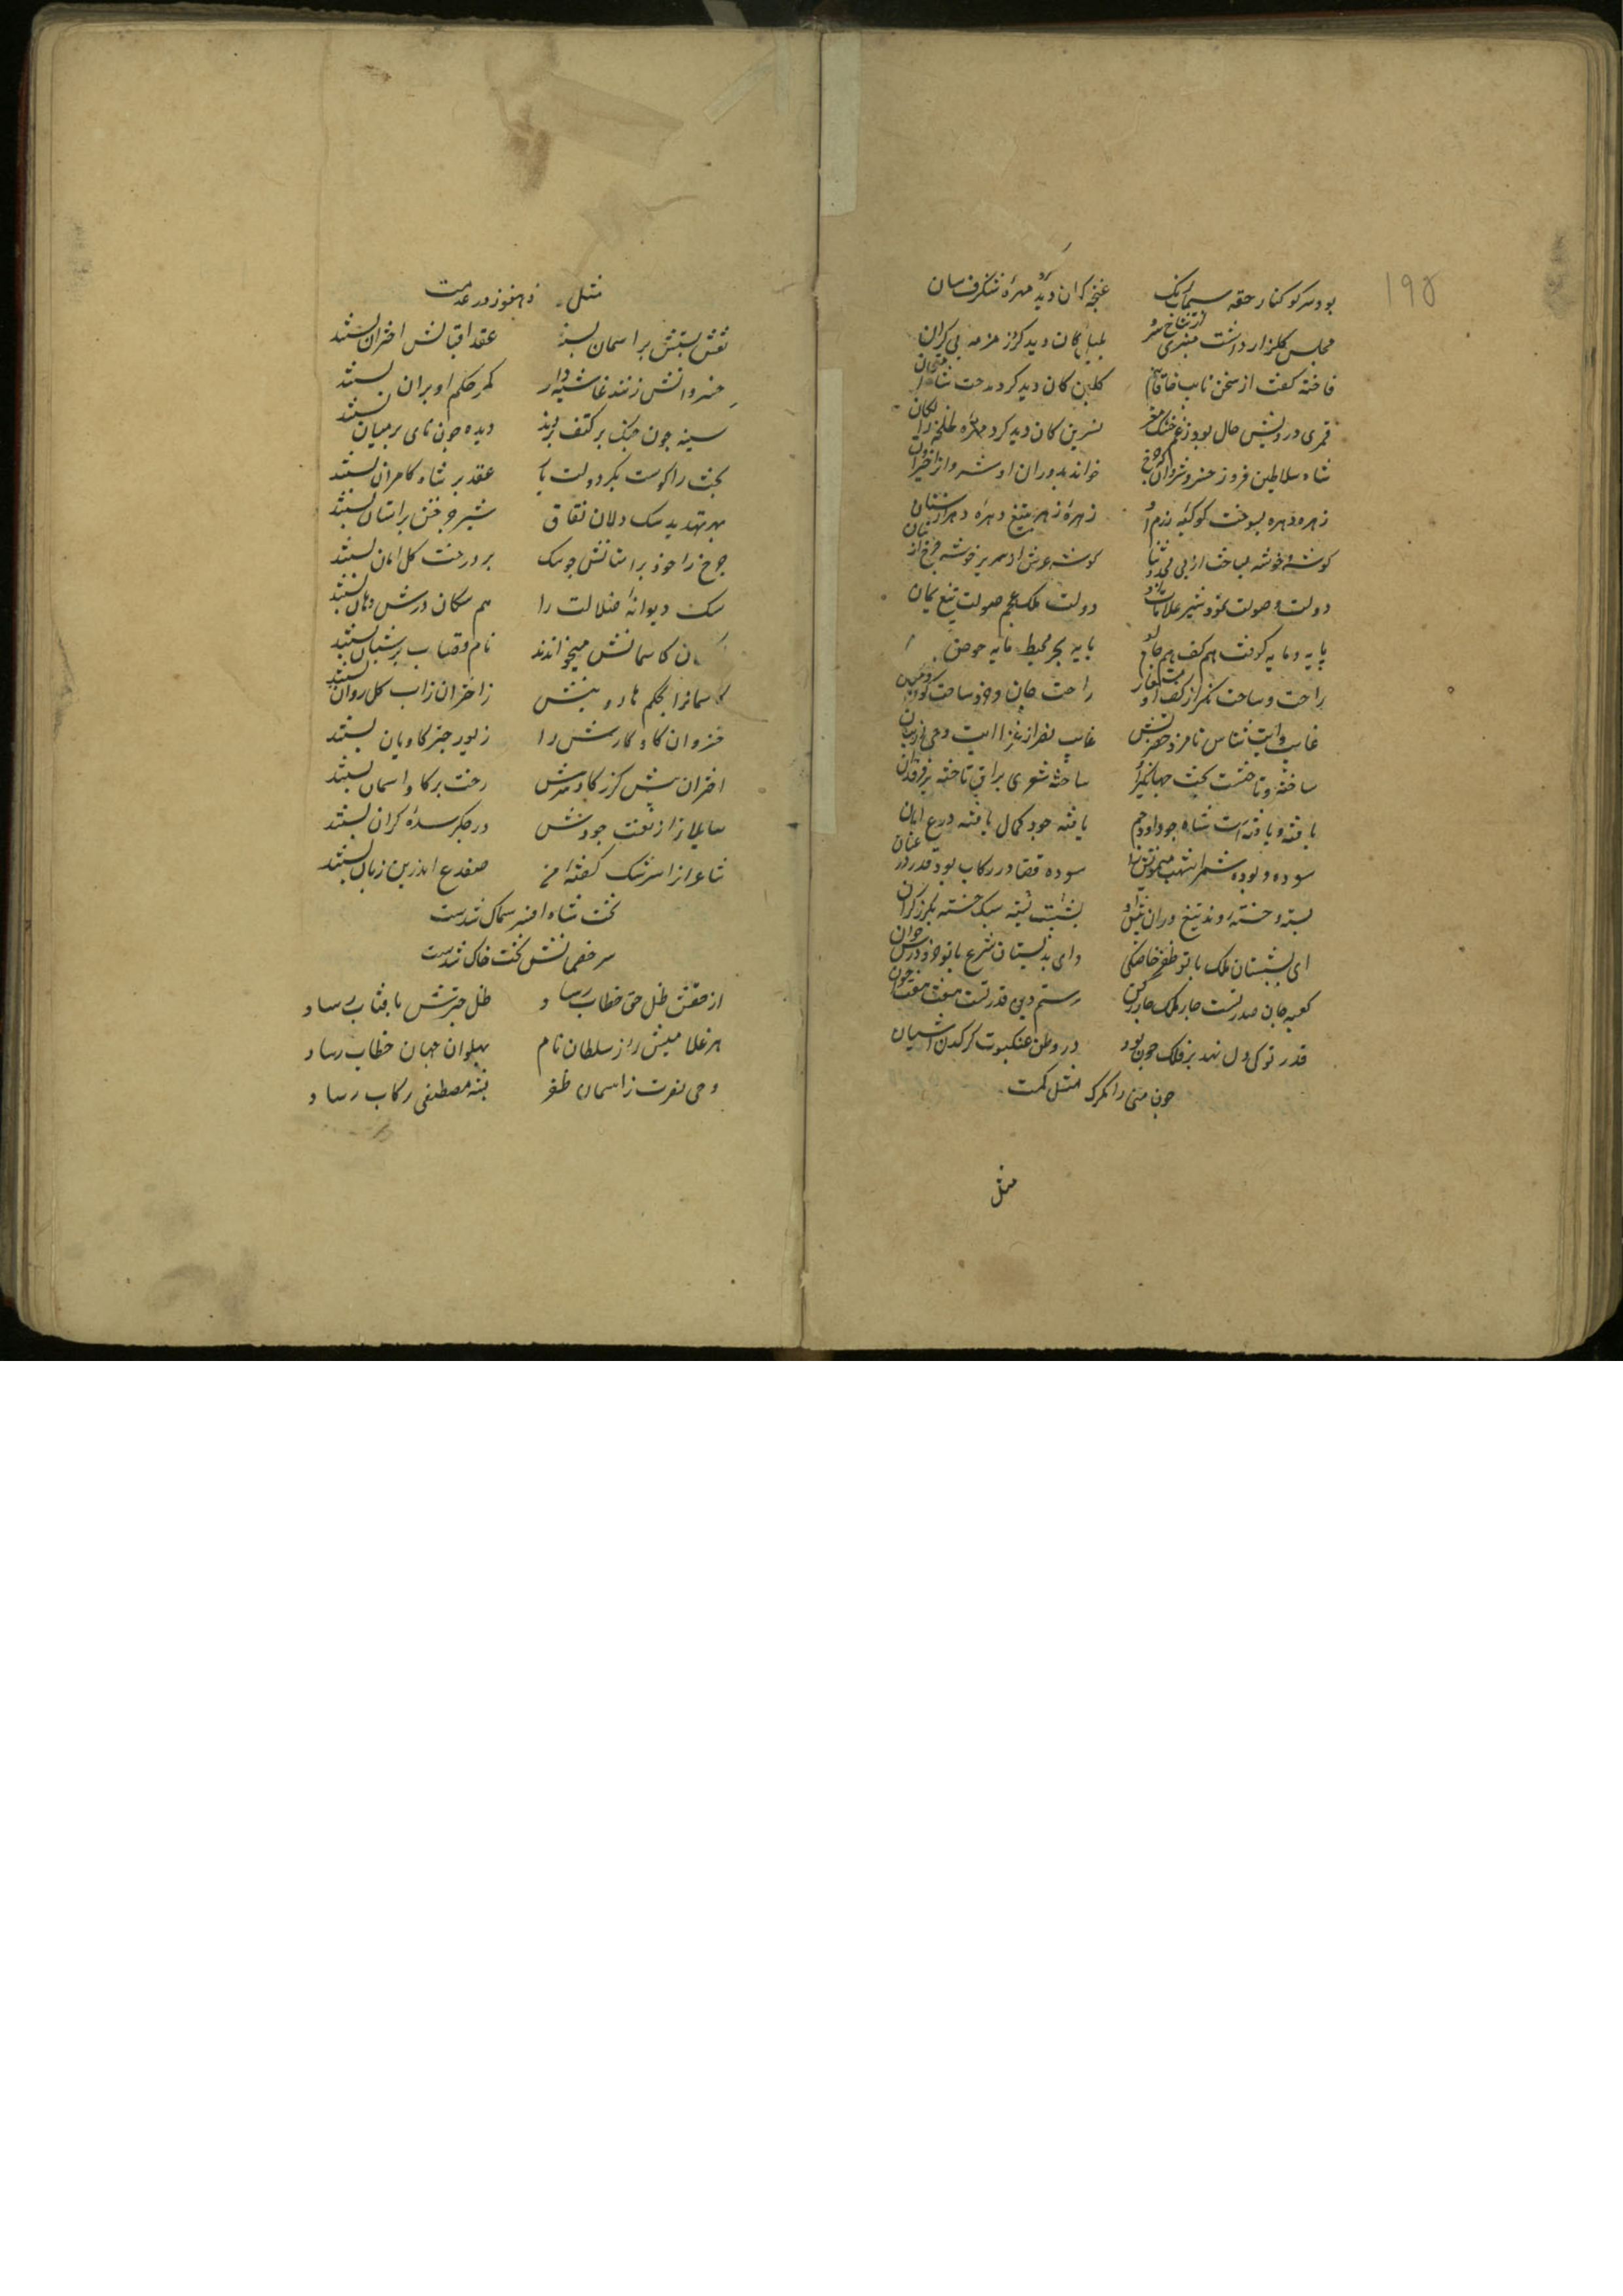 ۱۹۵
بود سر کوکنار حقه سیماب رنگ غنچه که آن دید کرد مهره شنگرف سان
مجلس گلزار داشت منبری از شاخ سرو بلبل کان دید کرد زمزمه بی کران
فاخته گفت از سخن نایب خاقانیم گلبن کان دید کرد مدحت شاه
قمری درویش حال بود ز غم خشک مغز نسرین کان دید کرد
شاه سلاطین فروز خسرو شروان که چرخ خواند بدوران او شروان را خیروان
زهره و دهره بسوخت کوکبه رزم او زهره زهره بتیغ دهره دهر از سنان
گوشه و خوشه بساخت از پی مجد و ثنا گوشه عرش از سریر خوشه چرخ از بنان
دولت و صولت نمود شیر علامات او دولت ملک عجم صولت تیغ یمان
پایه و مایه گرفت هم کف و هم جام او پایه بحر محیط مایه حوض
راحت و ساحت نگر از کف او مستعار راحت جان و خرد ساحت کون و مکان
ساخته و تاخته است بخت جهانگیر او ساخته شعری براق تاخته بر فرقدان
بافته و یافته است شاه چو داود و جم یافته خود کمال بافته درع امان
سوده و بوده شمر سوده قضا در رکاب بوده قدر در عنان
بسته و خسته روند تیغ وران پیش او بسته سبک خسته بگرز گران
ای بشبستان ملک با تو ظفر خاصگی وای بدبستان شرع با تو خرد درس خوان
کعبه جان صدر تست چار ملک چار رکن رستم دین قدر تست هفت فلک هفت خوان
قدر تو کی دل نهد بر فلک چون بود در وطن عنکبوت کرگدن آشیان
چون منی را مگر مثل کمست
مثل
مثل در عدمست
نقش بختش بر آسمان بستند عقد اقبالش اختران بستند
خسروانش زنند غاشیه دار کمر حکم او بر آن بستند
سینه چون چنگ بر کتف بردند دیده چون نای بر میان بستند
بخت را کوست بکر دولت زای عقد بر شاه کامران بستند
بهر تهدید سگ دلان نفاق شیر چرخش بر آستان بستند
چرخ را خود بر آستانش چو سگ بر درخت گل امان بستند
سگ دیوانه ضلالت را هم سگان درش دهان بستند
کاسمانش میخواندند نام قصاب بر شبان بستند
کاسمانرا بحکم هارونیش ز اختران زاب گل روان بستند
خسروان گاو گاریش را زیور چتر کاویان بستند
اختران پیش گرز گاوسرش رخت بر گاو آسمان بستند
سایلان را ز نعمت جودش در جگر سده گران بستند
شاعران از رشک گفته من ضفدع اندر بن زبان بستند
تخت شاه افسر سماک شدست
سر خصمانش تخت خاک شدست
از حقش ظل حق خطاب رساد ظل چترش بآفتاب رساد
هر غلامیش را ز سلطانان نام پهلوان جهان خطاب رساد
وحی نصرت ز آسمان ظفر به مصطفی رکاب رساد